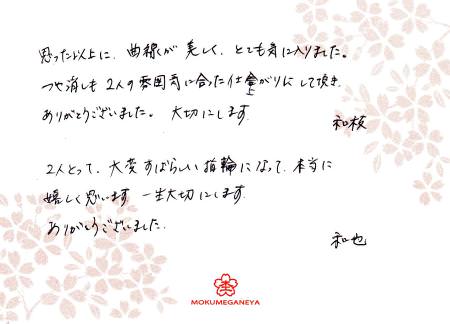 思った以上に、曲線が美しく、とても気に入りました。
つや消しも2人の雰囲気に合った仕上がりにして頂き、
ありがとうございました。大切にします。
和枝
2人とって、大変すばらしい指輪になって、本当に
嬉しく思います。一生大切にします。
ありがとうございました。
和也
MOKUMEGANEYA